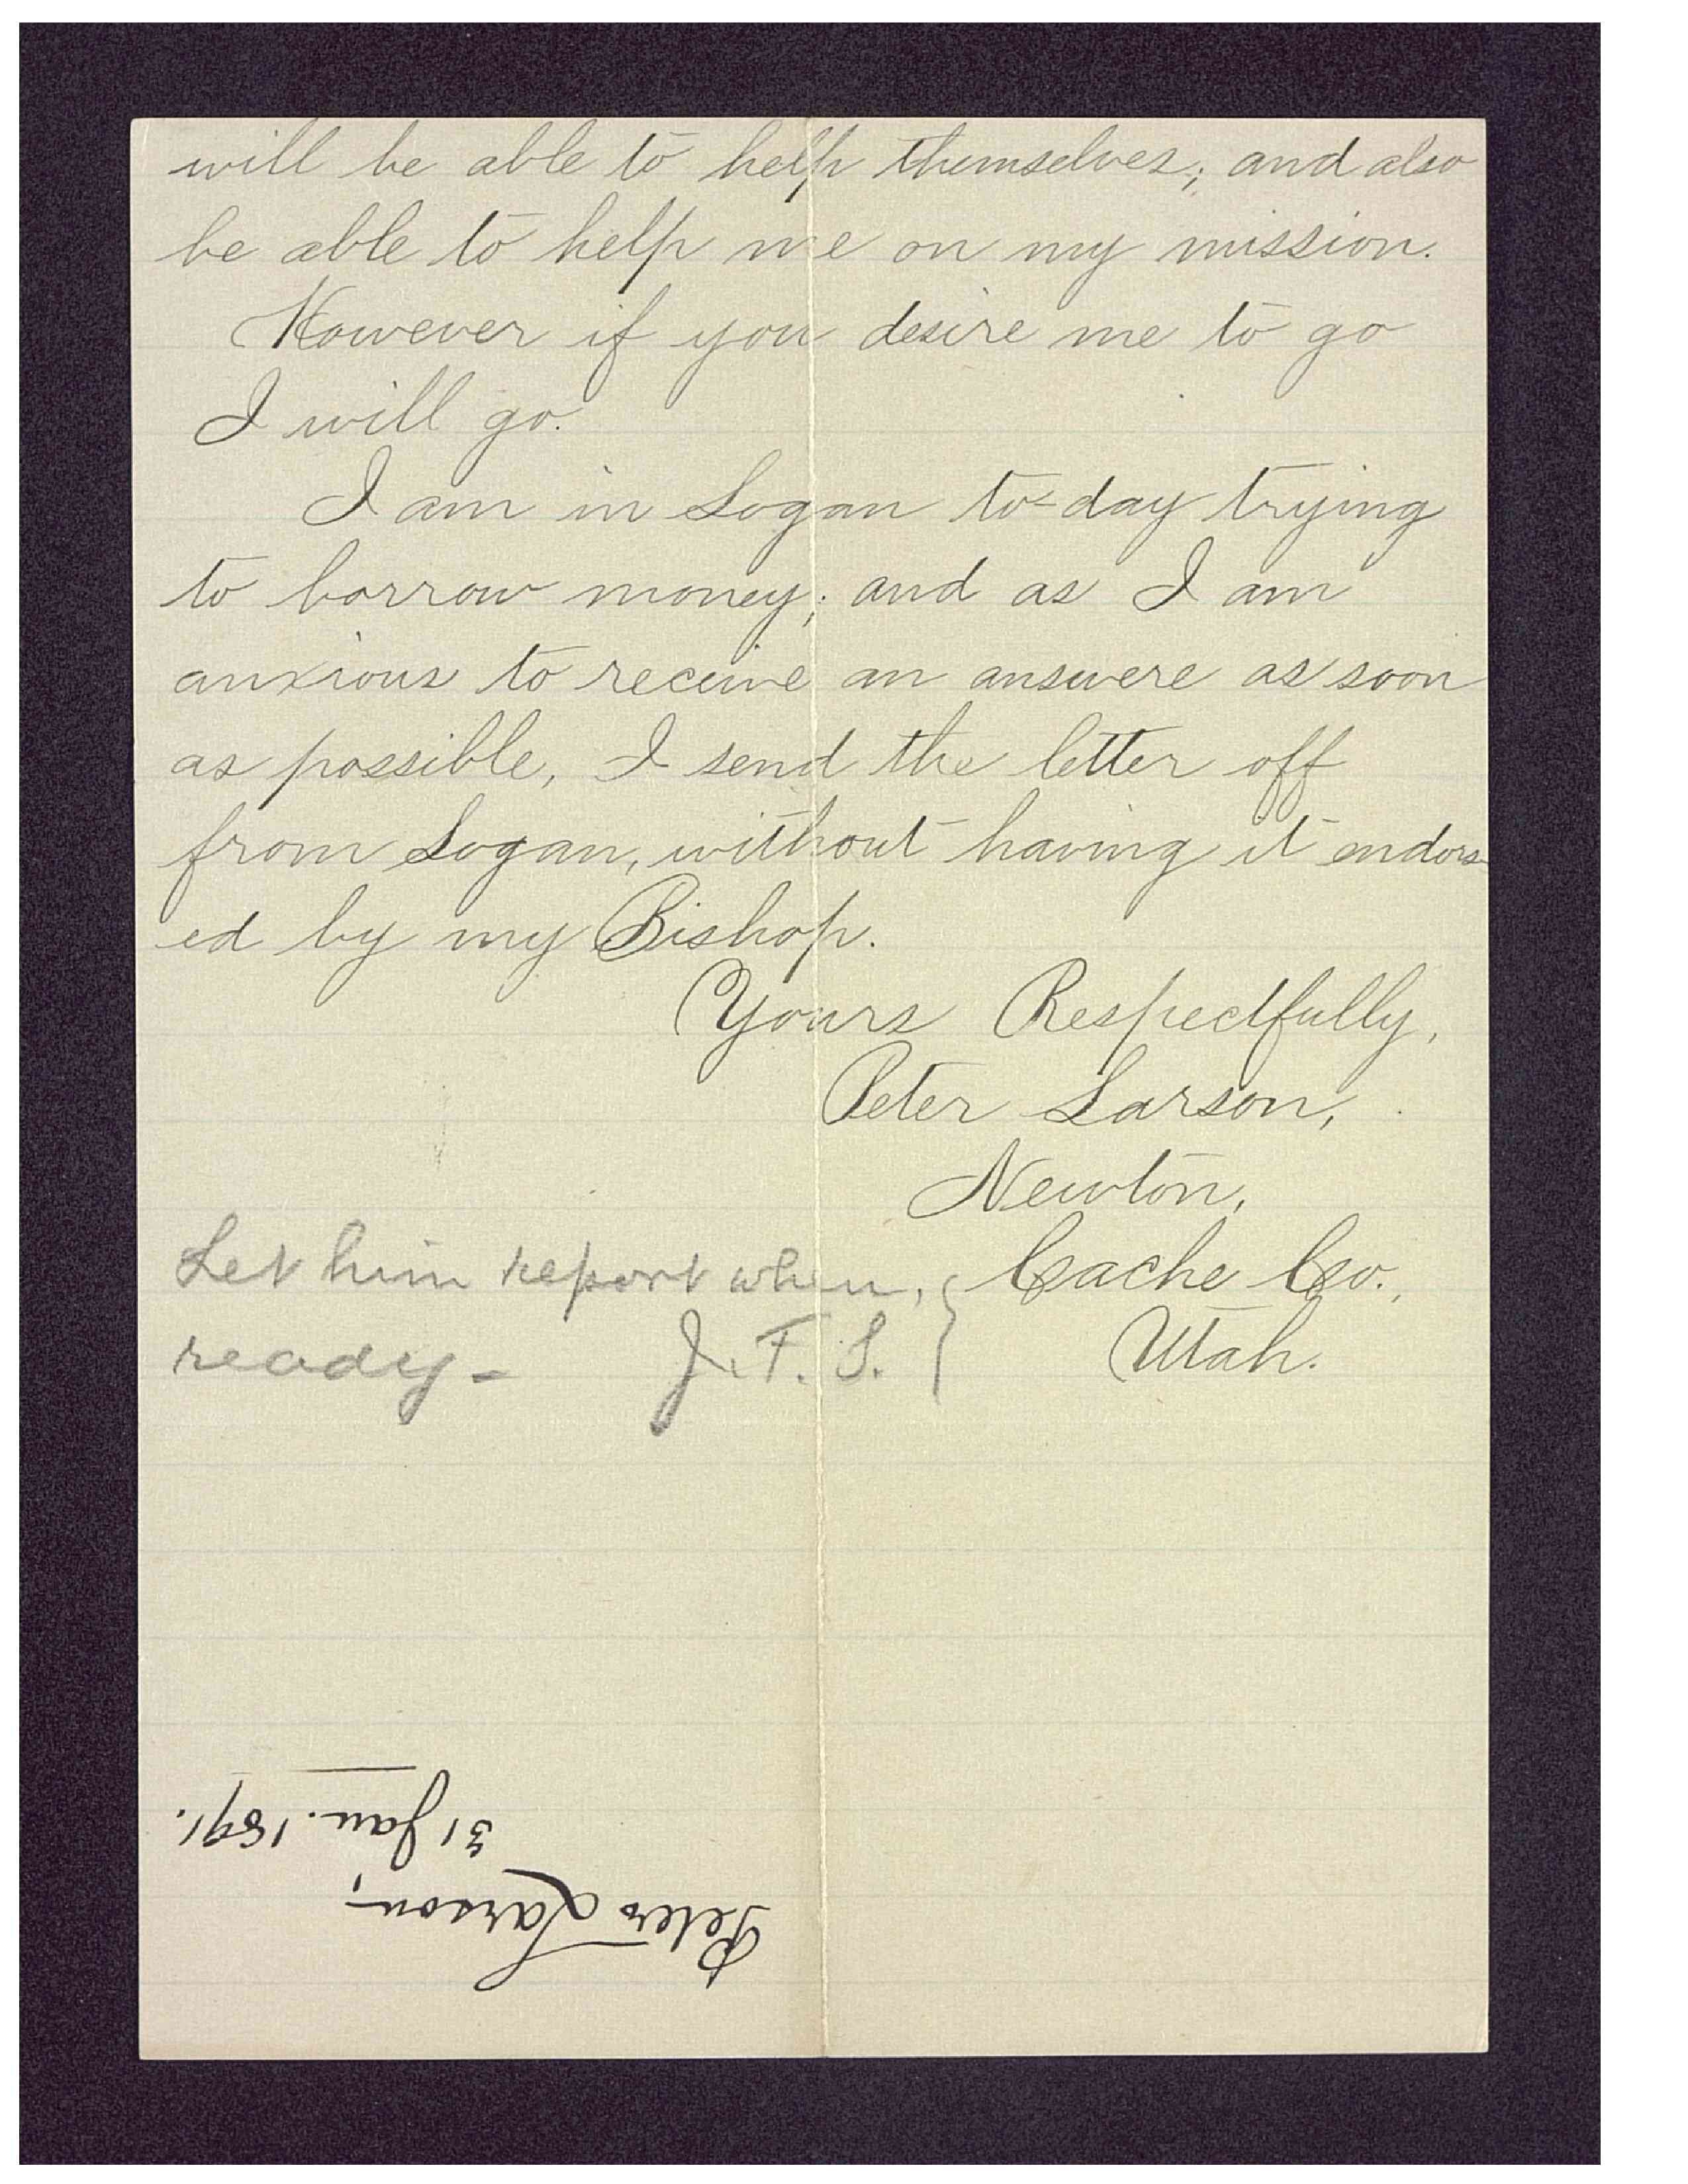 will be able to help themselves; and also
be able to help me on my mission.
However if you desire me to go
I will go.
I am in Logan to-day trying
to borrow money; and as I am
anxious to receive an answere as soon
as possible, I send the letter off
from Logan, without having it endors-
ed by my Bishop.
Yours Respectfully,
Peter Larson,
Newton,
Cache Co.,
Utah.
Let him report when,
ready - J. F. S.
Peter Larson,
31 Jan. 1891.